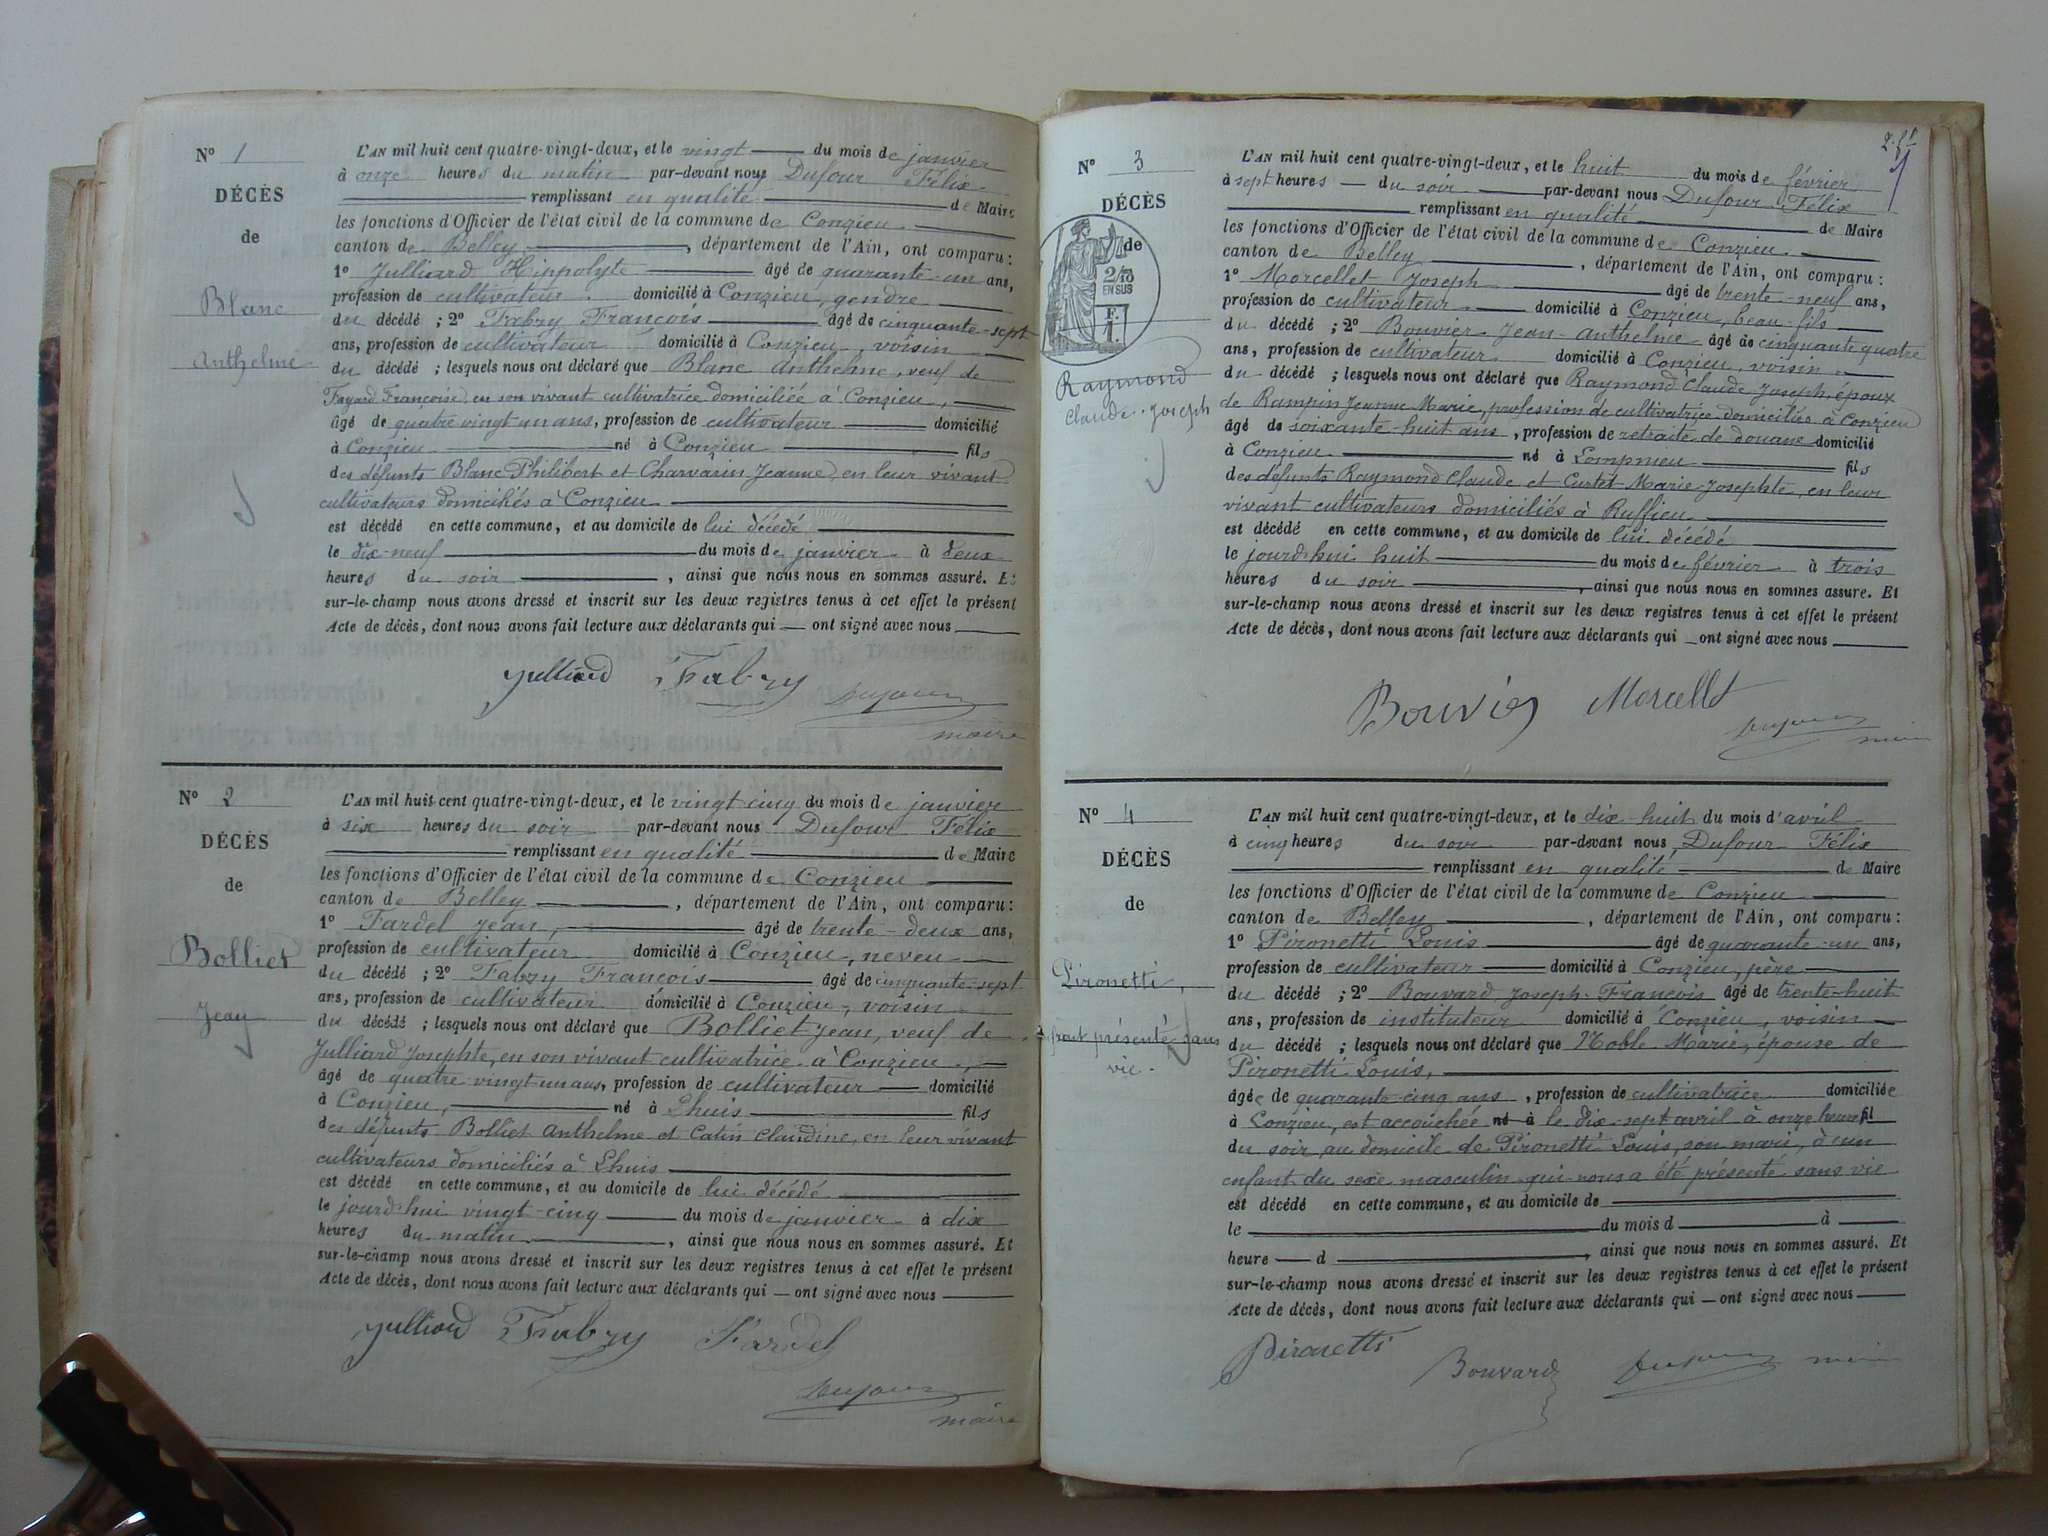 N° 1
DÉCÈS
de
Blanc
Anthelme
L'AN mil huit cent quatre-vingt-deux, et le vingt du mois de janvier
à onze heures du matin par-devant nous Dufour Félix
remplissant en qualité de Maire
les fonctions d'Officier de l'état civil de la commune de Conzieu
canton de Belley, département de l'Ain, ont comparu :
1° Julliard Hippolyte âgé de quarante-un ans,
profession de cultivateur domicilié à Conzieu, gendre
du décédé ; 2° Fabry François âgé de cinquante-sept
ans, profession de cultivateur domicilié à Conzieu, voisin
du décédé ; lesquels nous ont déclaré que Blanc Anthelme, veuf de
Fayard Françoise, en son vivant cultivatrice domiciliée à Conzieu,
âgé de quatre vingt un ans, profession de cultivateur domicilié
à Conzieu né à Conzieu fils
des défunts Blanc Philibert et Charvarin Jeanne, en leur vivant
cultivateurs domiciliés à Conzieu
est décédé en cette commune, et au domicile de lui décédé
le dix-neuf du mois de janvier à deux
heures du soir, ainsi que nous nous en sommes assuré. Et
sur-le-champ nous avons dressé et inscrit sur les deux registres tenus à cet effet le présent
Acte de décès, dont nous avons fait lecture aux déclarants qui — ont signé avec nous
Julliard Fabry Dufour
maire
N° 2
DÉCÈS
de
Bolliet
Jean
L'AN mil huit cent quatre-vingt-deux, et le vingt cinq du mois de janvier
à six heures du soir par-devant nous Dufour Félix
remplissant en qualité de Maire
les fonctions d'Officier de l'état civil de la commune de Conzieu
canton de Belley, département de l'Ain, ont comparu :
1° Fardel Jean, âgé de trente-deux ans,
profession de cultivateur domicilié à Conzieu, neveu
du décédé ; 2° Fabry François âgé de cinquante-sept
ans, profession de cultivateur domicilié à Conzieu, voisin
du décédé ; lesquels nous ont déclaré que Bolliet Jean, veuf de
Julliard Josephte, en son vivant cultivatrice à Conzieu,
âgé de quatre vingt un ans, profession de cultivateur domicilié
à Conzieu, né à Lhuis fils
des défunts Bolliet Anthelme et Catin Claudine, en leur vivant
cultivateurs domiciliés à Lhuis
est décédé en cette commune, et au domicile de lui décédé
le jourd'hui vingt-cinq du mois de janvier à dix
heures du matin, ainsi que nous nous en sommes assuré. Et
sur-le-champ nous avons dressé et inscrit sur les deux registres tenus à cet effet le présent
Acte de décès, dont nous avons fait lecture aux déclarants qui — ont signé avec nous
Julliard Fabry Fardel
Dufour
maire
N° 3
DÉCÈS
de
2/10
EN SUS
F.
1.
Raymond
Claude-Joseph
L'AN mil huit cent quatre-vingt-deux, et le huit du mois de février
à sept heures — du soir par-devant nous Dufour Félix
remplissant en qualité de Maire
les fonctions d'Officier de l'état civil de la commune de Conzieu
canton de Belley, département de l'Ain, ont comparu :
1° Morcellet Joseph âgé de trente-neuf ans,
profession de cultivateur domicilié à Conzieu, beau-fils
du décédé ; 2° Bouvier Jean-Anthelme âgé de cinquante quatre
ans, profession de cultivateur domicilié à Conzieu, voisin
du décédé ; lesquels nous ont déclaré que Raymond Claude Joseph, époux
de Rampin Jeanne Marie, profession de cultivatrice domiciliée à Conzieu
âgé de soixante-huit ans, profession de retraité de douane domicilié
à Conzieu né à Lompnieu fils
des défunts Raymond Claude et Curtet Marie-Josephte, en leur
vivant cultivateurs domiciliés à Ruffieu
est décédé en cette commune, et au domicile de lui décédé
le jourd'hui huit du mois de février à trois
heures du soir, ainsi que nous nous en sommes assuré. Et
sur-le-champ nous avons dressé et inscrit sur les deux registres tenus à cet effet le présent
Acte de décès, dont nous avons fait lecture aux déclarants qui — ont signé avec nous
Bouvier Morcellet
Dufour
N° 4
DÉCÈS
de
Pironetti,
présenté sans
vie.
L'AN mil huit cent quatre-vingt-deux, et le dix-huit du mois d'avril
à cinq heures du soir par-devant nous Dufour Félix
remplissant en qualité de Maire
les fonctions d'Officier de l'état civil de la commune de Conzieu
canton de Belley, département de l'Ain, ont comparu :
1° Pironetti Louis âgé de quarante-un ans,
profession de cultivateur domicilié à Conzieu, père
du décédé ; 2° Bouvard Joseph-François âgé de trente-huit
ans, profession de instituteur domicilié à Conzieu, voisin
du décédé ; lesquels nous ont déclaré que Noble Marie, épouse de
Pironetti Louis,
âgée de quarante-cinq ans, profession de cultivatrice domiciliée
à Conzieu, est accouchée né à le dix-sept avril à onze heures fil
du soir, au domicile de Pironetti Louis, son mari, à un
enfant du sexe masculin qui nous a été présenté sans vie
est décédé en cette commune, et au domicile de
le du mois d à
heure d, ainsi que nous nous en sommes assuré. Et
sur-le-champ nous avons dressé et inscrit sur les deux registres tenus à cet effet le présent
Acte de décès, dont nous avons fait lecture aux déclarants qui — ont signé avec nous
Pironetti Bouvard Dufour